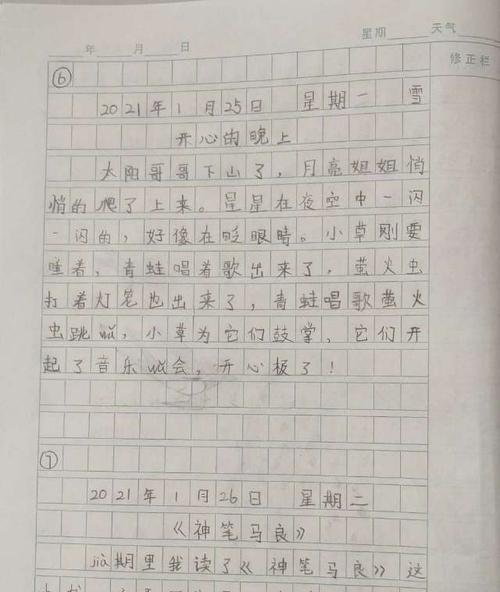 星期 天气
年 月 日
修正栏
⑥
2021年1月25日 星期一 雪
开心的晚上
太阳哥哥下山了，月亮姐姐悄
悄的爬了上来。星星在夜空中一闪
一闪的，好像在眨眼睛。小草刚要
睡着，青蛙唱着歌出来了，萤火虫
打着灯笼也出来了，青蛙唱歌萤火
虫跳wǔ，小草为它们鼓掌，它们开
起了音乐wǔ会，开心极了！
⑦
2021年1月26日 星期二
《神笔马良》
jià期里我读了《神笔马良》这